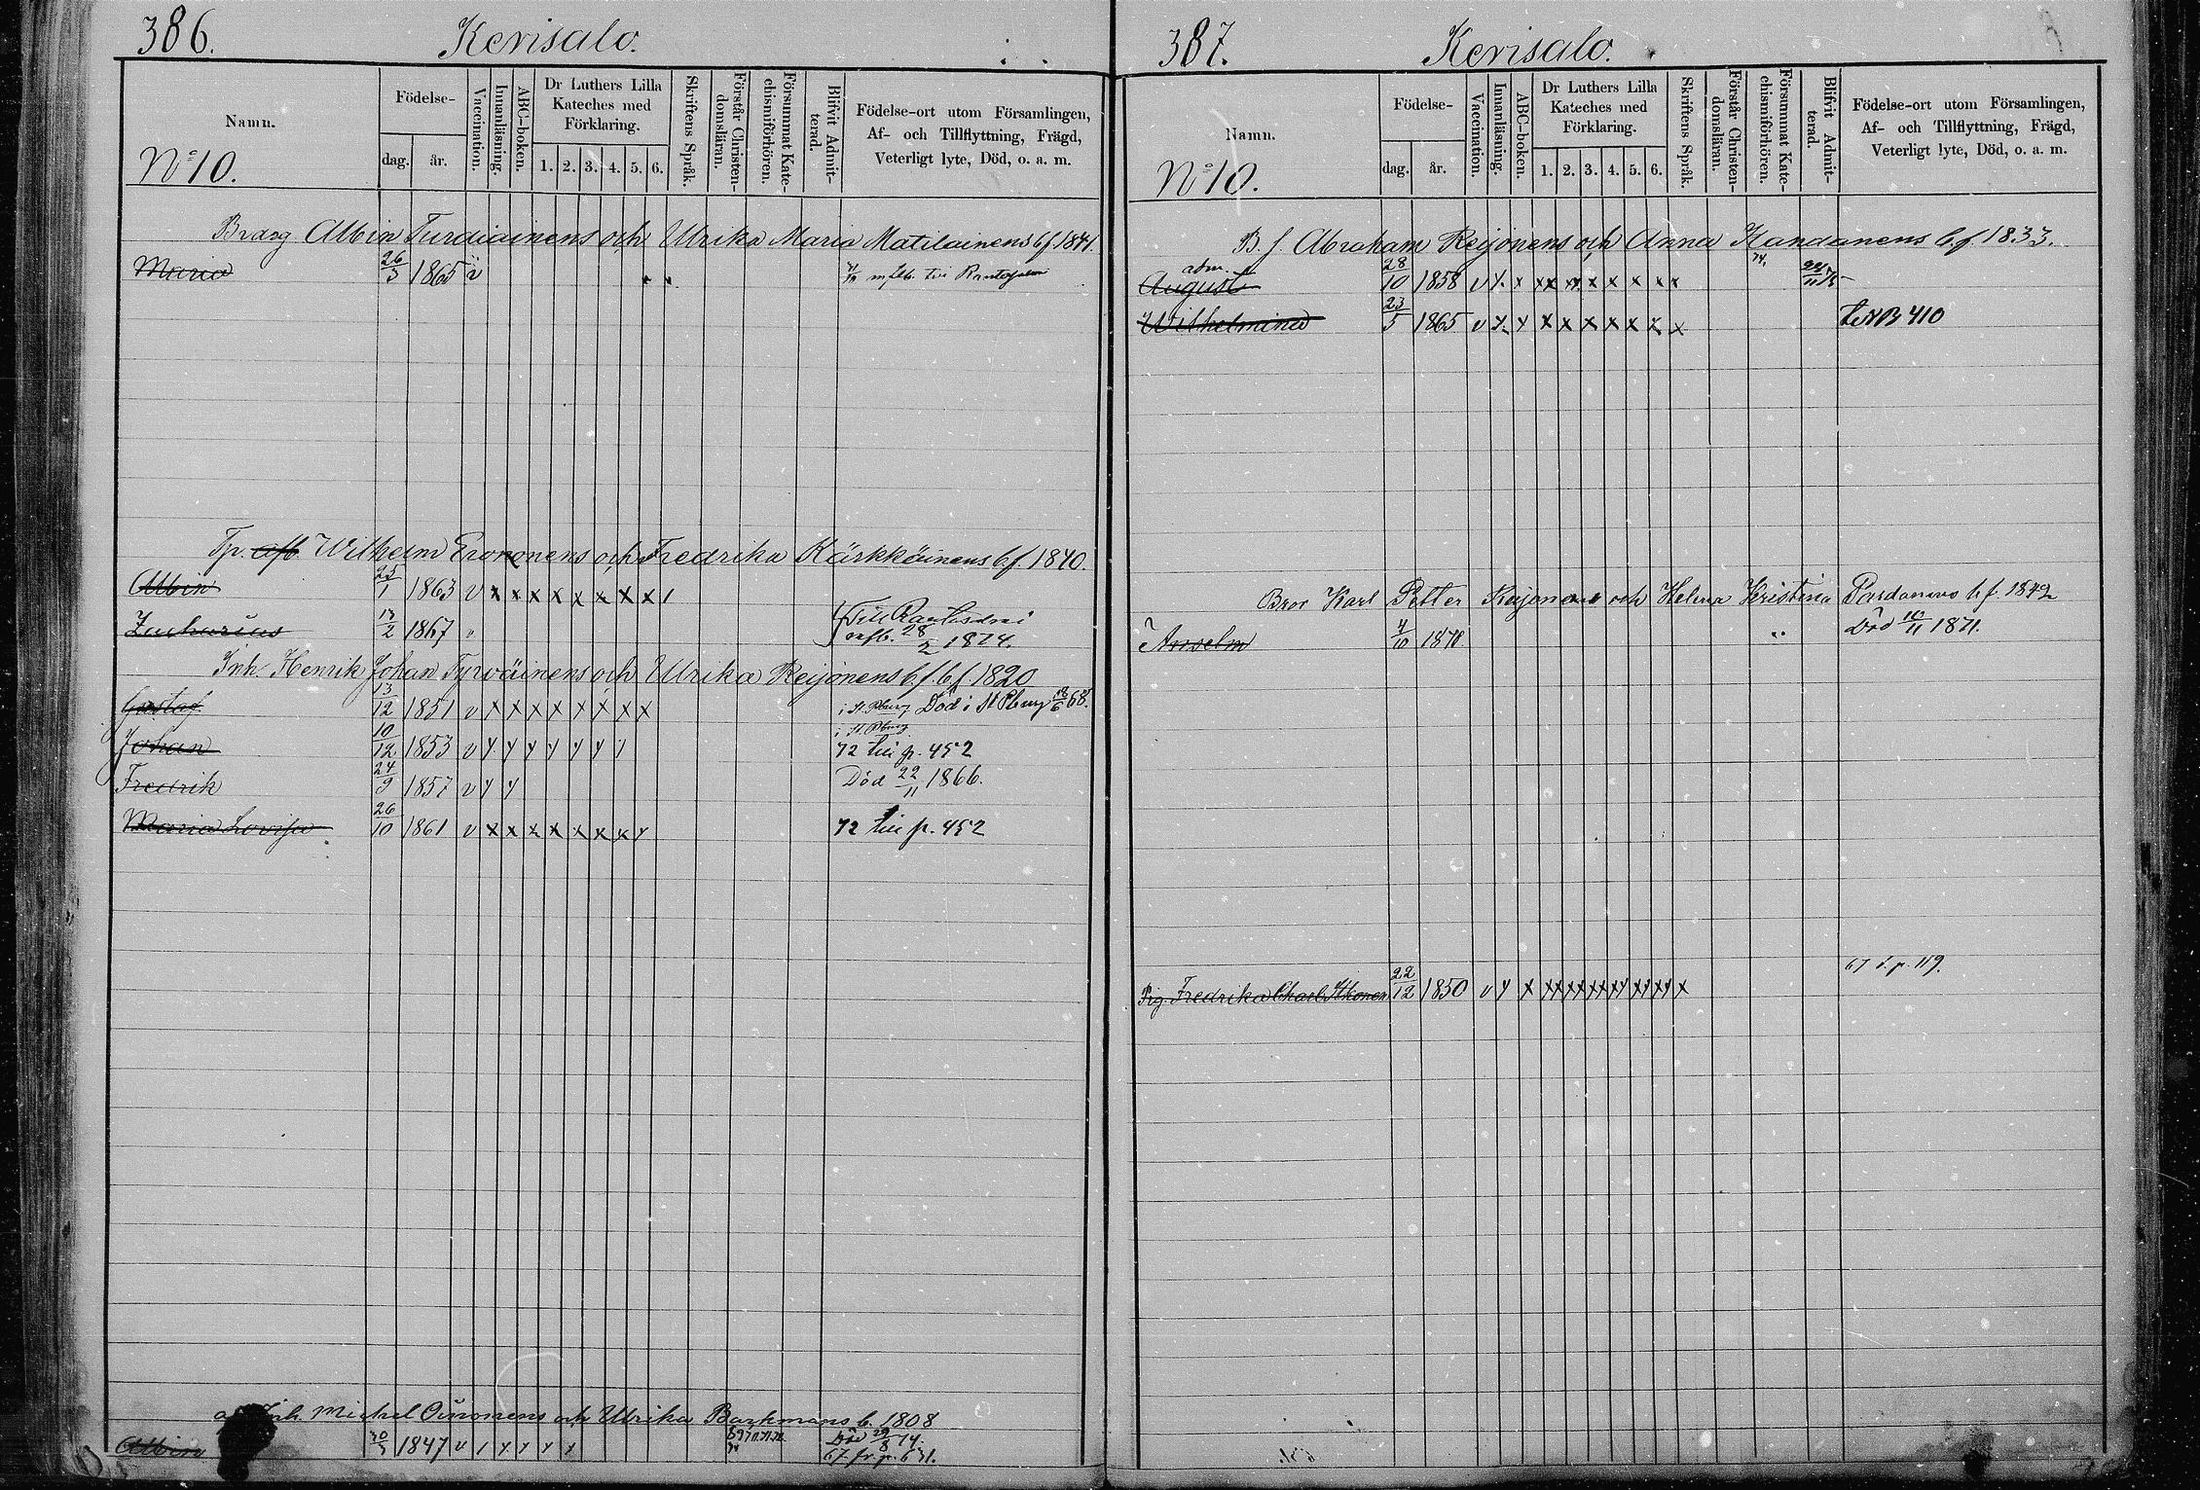 386. Kerisalo.
Namn.
No 10.
Födelse-
dag. år.
Vaccination.
Innanläsning.
ABC-boken.
Dr Luthers Lilla Kateches med Förklaring.
1. 2. 3. 4. 5. 6.
Skriftens Språk.
Förstår Christendomsläran.
Försummat Katechismiförhören.
Blifvit Admitterad.
Födelse-ort utom Församlingen, Af- och Tillflyttning, Frägd, Veterligt lyte, Död, o. a. m.
Albin Turdiainens och Ulrika Maria Matilainens b f 1841.
Maria 26/3 1865 v
Wilhelm Eronens och Fredrika Kärkkäinens b.f. 1840.
Albin 25/1 1863 v x x x x x x x x 1
Zacharias 13/2 1867 28/2 1874.
Inh. Henrik Johan Tyrväinens och Ulrika Reijonens b.f. b.f. 1820
Gustaf 13/12 1851 v x x x x x x x x i St Pburg Död i St Pburg 68.
i St. Pburg
Johan 10/12 1853 v y y y y y y 72 till p. 452
Fredrik 24/9 1857 v y y Död 22/11 1866.
Maria Lovisa 26/10 1861 v x x x x x x x x 72 till p. 452
Inh. Michel Oinonens och Ulrika Barkmans b. 1808
Albin 1847 v Död 29/8 74.
67. fr p. 631.
387. Kerisalo.
Namn.
No 10.
Födelse-
dag. år.
Vaccination.
Innanläsning.
ABC-boken.
Dr Luthers Lilla Kateches med Förklaring.
1. 2. 3. 4. 5. 6.
Skriftens Språk.
Förstår Christendomsläran.
Försummat Katechismiförhören.
Blifvit Admitterad.
Födelse-ort utom Församlingen, Af- och Tillflyttning, Frägd, Veterligt lyte, Död, o. a. m.
B. f. Abraham Reijonens och Anna Kandanens b.f. 1833.
adm.
August 28/10 1858 v x x xx x x x x x xx
Wilhelmina 23/5 1865 v x x x x x x x x x 410
Karl Petter Reijonens och Helena Kristina Pardanens b f. 1842
Anselm 4/10 1870 Död 16/11 1871.
67 t. p. 119.
Pig. Fredrika Charl. Ikonen 22/12 1850 v y x xx xx xx xy xx xx x